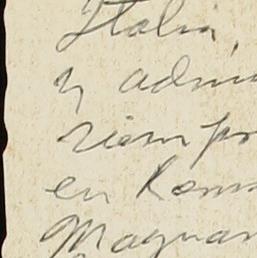 Italia,
y admi
siempr
en Roma
Magnan